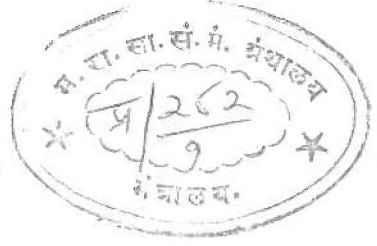 म. रा. सा. सं. मं. ग्रंथालय
प्र/२८२
१
मंत्रालय.